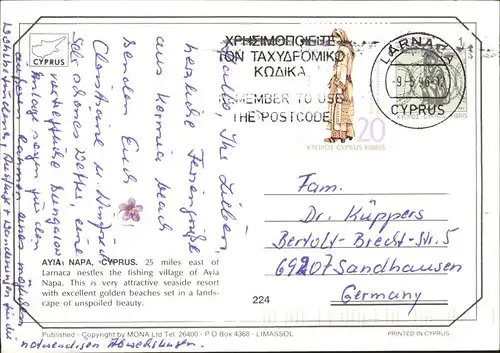 CYPRUS
ΧΡΗΣΙΜΟΠΟΙΕΙΤΕ
ΤΟΝ ΤΑΧΥΔΡΟΜΙΚΟ
ΚΩΔΙΚΑ
REMEMBER TO USE
THE POSTCODE
LARNACA
CYPRUS
20
ΚΥΠΡΟΣ CYPRUS KIBRIS
Hallo, Ihr Lieben,
herzliche Feriengrüße
aus Kermia beach
senden Euch
Christiane u. Winfried
Sehr schönes Wetter, eine
Bungalow
Anlage sorgen für den
Rahmen eines möglichen
Wohlbefindens, Ausflüge + Wanderungen für die
notwendigen Abwechslungen.
Fam.
Dr. Küppers
Bertolt-Brecht-Str. 5
69207 Sandhausen
Germany
AYIA NAPA, CYPRUS. 25 miles east of
Larnaca nestles the fishing village of Ayia
Napa. This is very attractive seaside resort
with excellent golden beaches set in a lands-
cape of unspoiled beauty.
224
Published - Copyright by MONA Ltd Tel. 26400 - P O Box 4368 - LIMASSOL
PRINTED IN CYPRUS